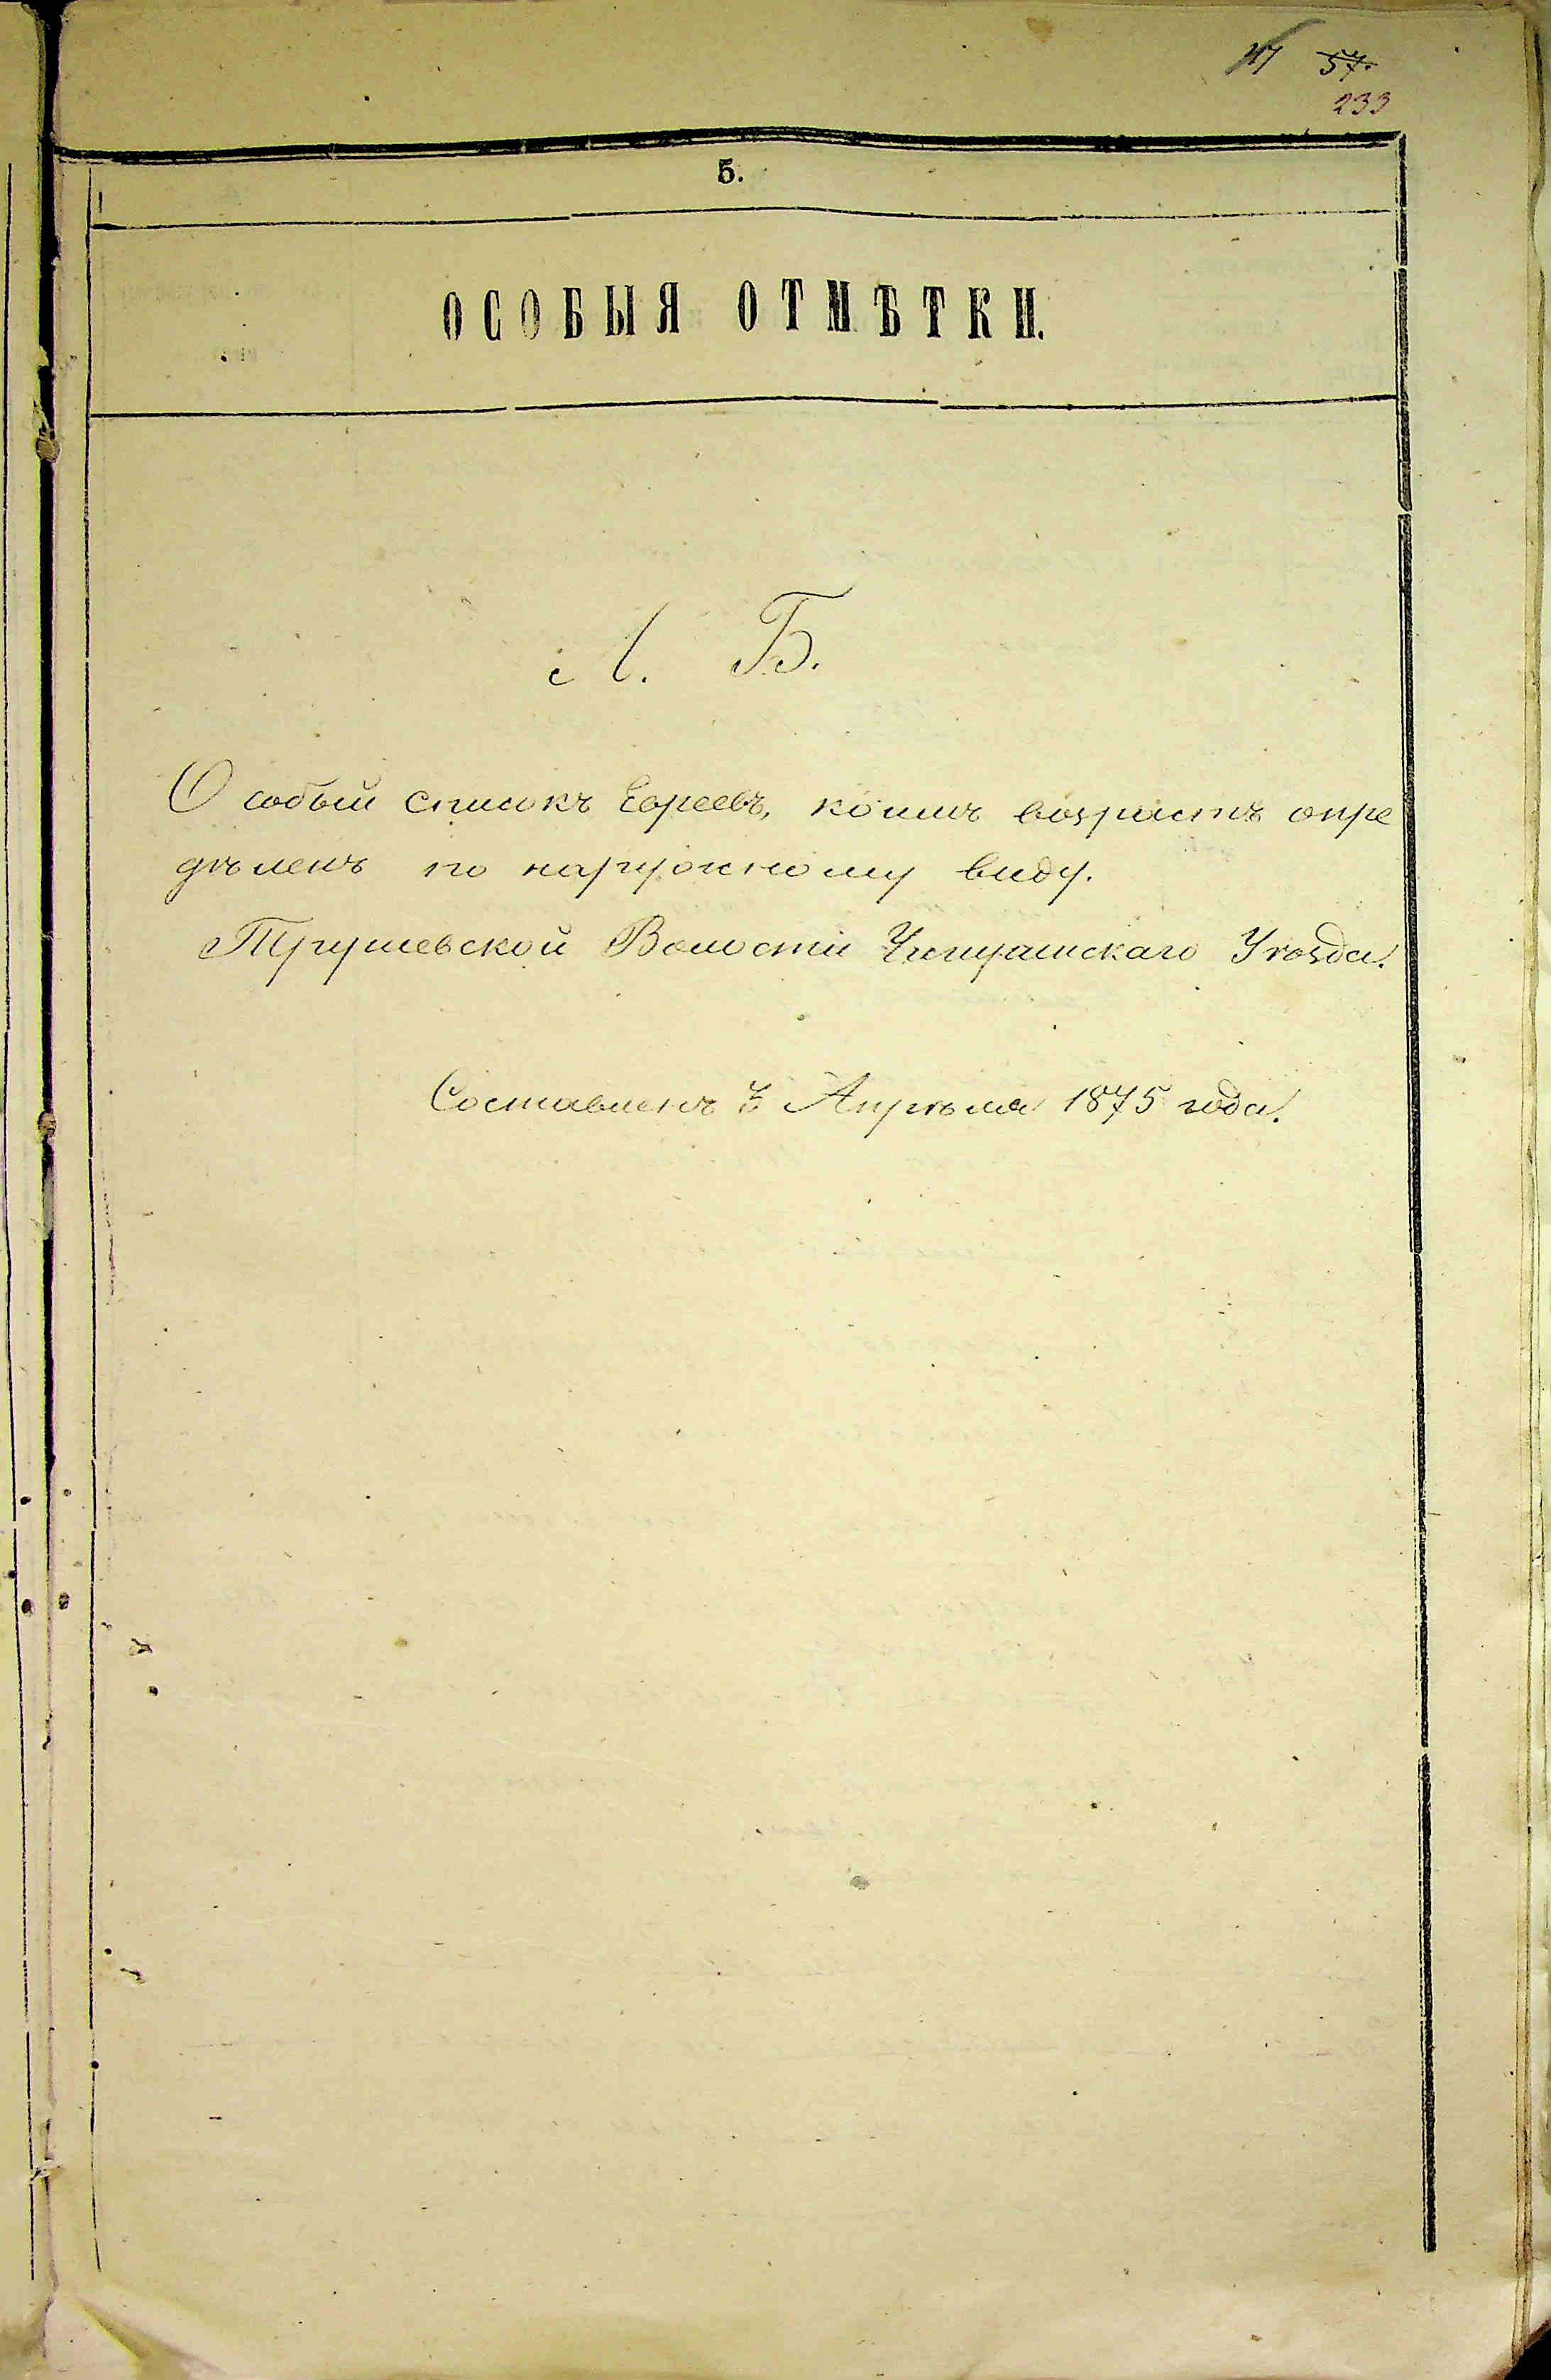 47 57.
233
5.
ОСОБЫЯ ОТМѢТКИ.
Л. Б.
Особый списокъ Евреевъ, коимъ возрастъ опре
дѣленъ по наружному виду.
Трушевской Волости Чигиринскаго Уѣзда.
Составленъ 3 Апрѣля 1875 года.